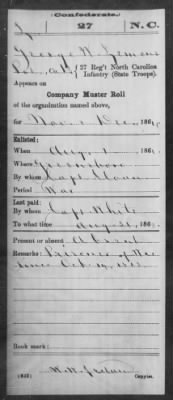 Confederate.
27 N.C.
George W. Lemons
Pvt., Co. B, 27 Reg't North Carolina
Infantry (State Troops).
Appears on
Company Muster Roll
of the organization named above,
for Nov. & Dec., 186
Enlisted:
When Aug. 1, 186
Where Greensboro
By whom Capt. Sloan
Period War
Last paid:
By whom Capt. White
To what time Aug. 31, 186
Present or absent Absent
Remarks: Prisoner of War
since Oct. 14, 1863.
Book mark:
(642)
Copyist.